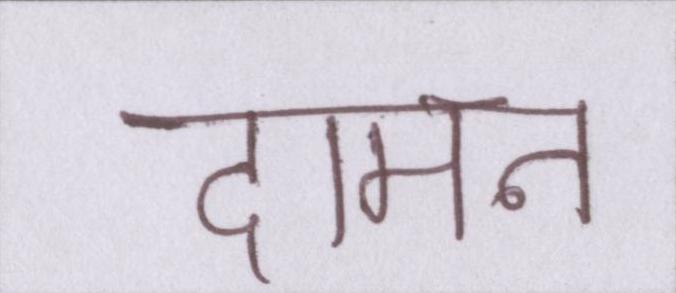 दामन